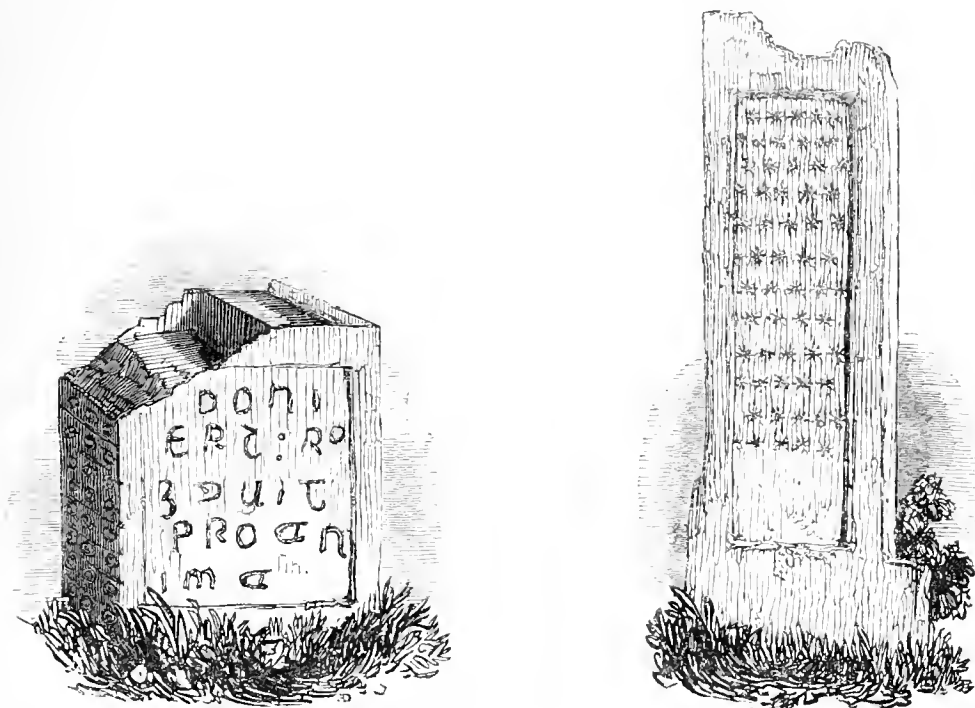 DONI
ERT:RO
ȜAUIT
PROAN
IMA
lin.